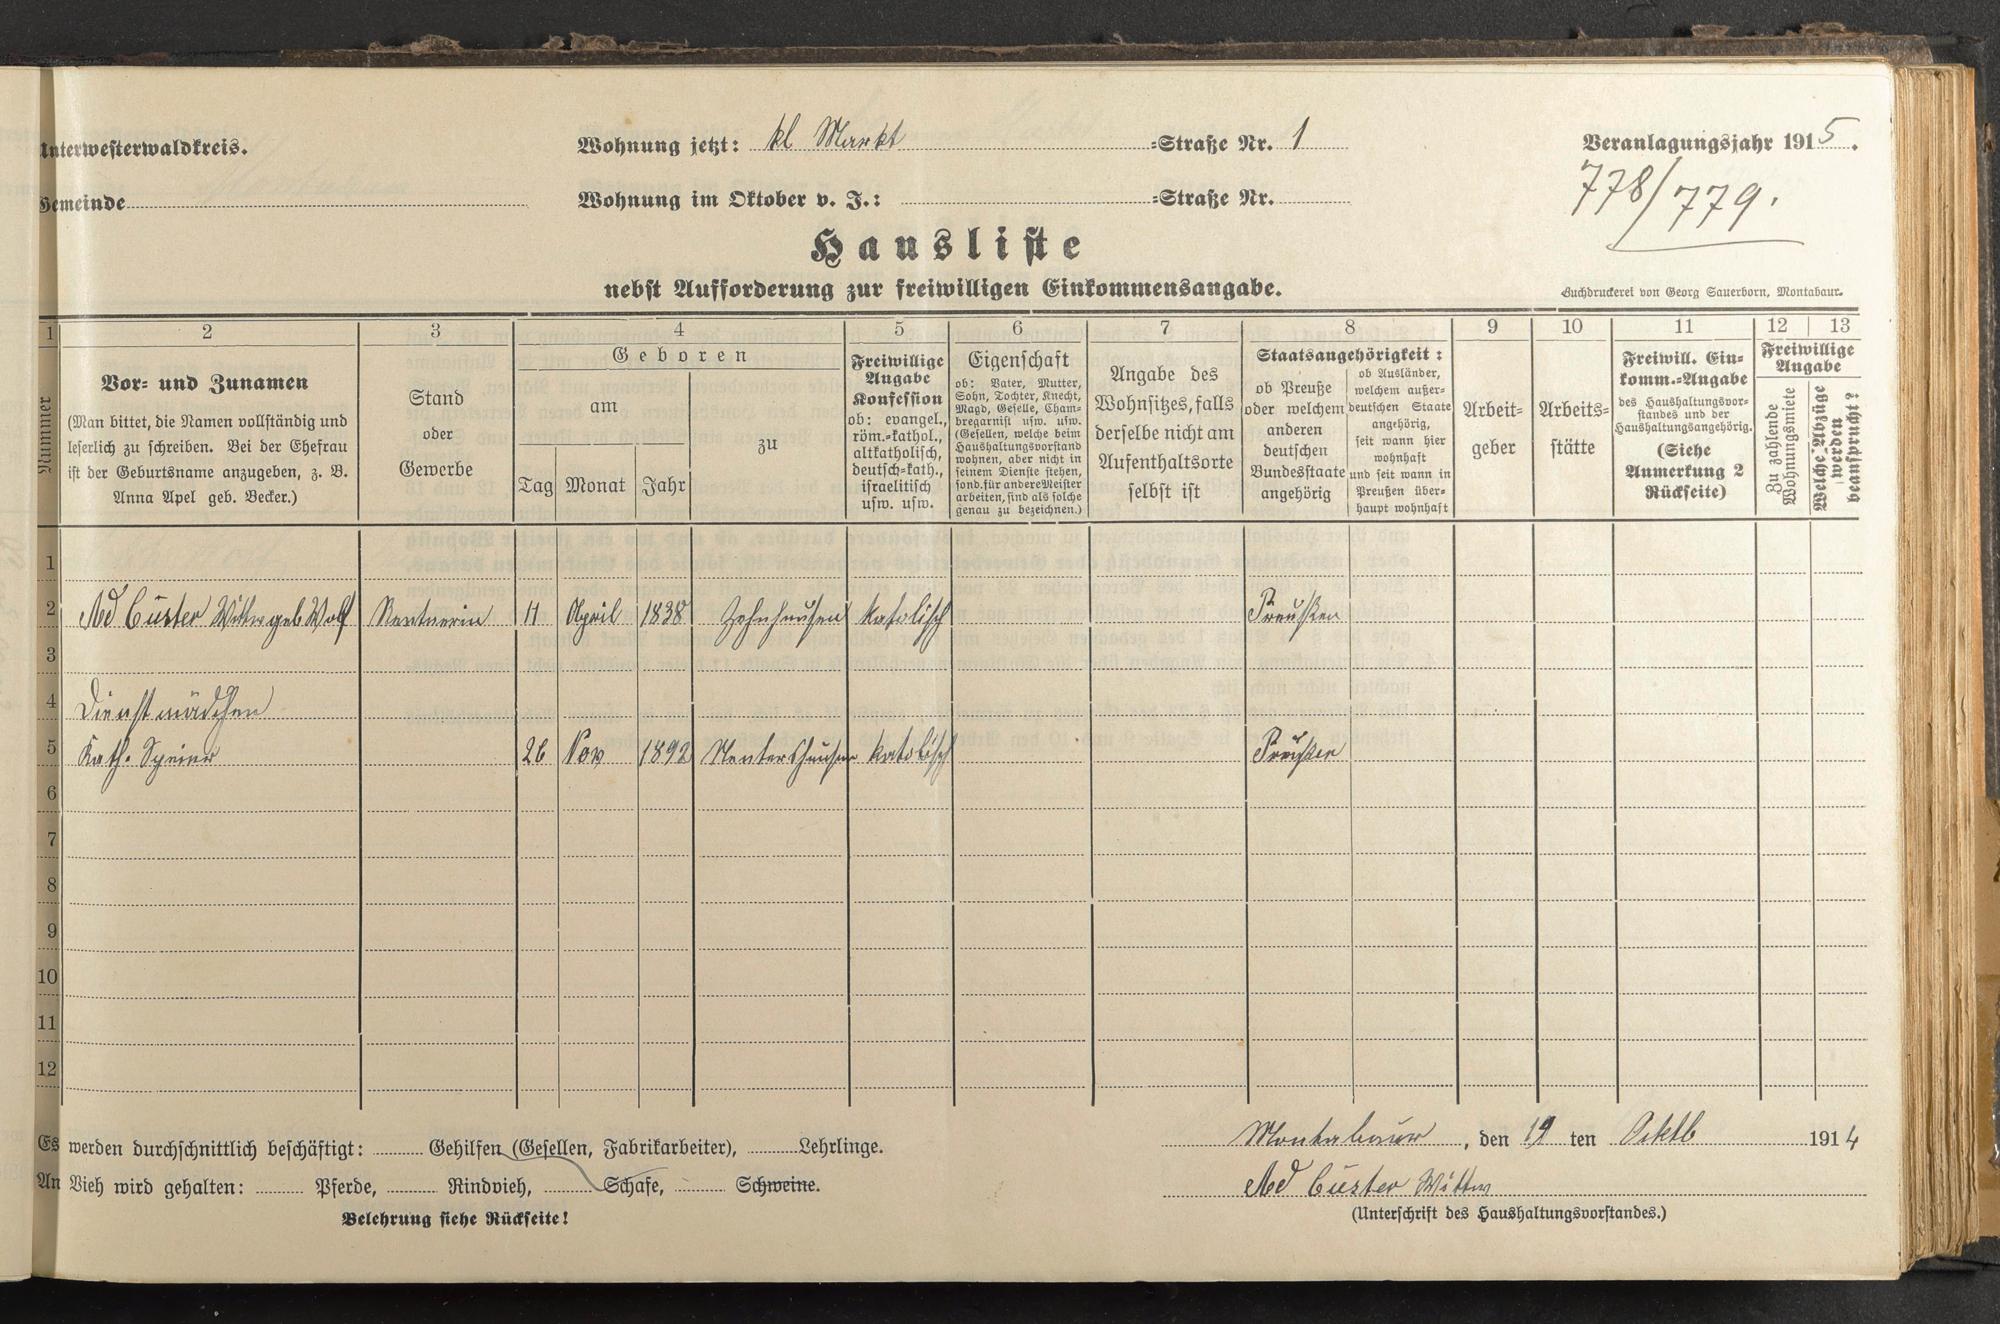 Unterwesterwaldkreis.
Wohnung jetzt: kl Markt =Straße Nr. 1
Veranlagungsjahr 1915.
Gemeinde
Wohnung im Oktober v. J.: =Straße Nr.
778/779.
Hausliste
nebst Aufforderung zur freiwilligen Einkommensangabe.
Buchdruckerei von Georg Sauerborn, Montabaur.
1 2 3 4 5 6 7 8 9 10 11 12 13
Nummer
Vor= und Zunamen
(Man bittet, die Namen vollständig und
leserlich zu schreiben. Bei der Ehefrau
ist der Geburtsname anzugeben, z. B.
Anna Apel geb. Becker.)
Stand
oder
Gewerbe
Geboren
am
Tag Monat Jahr
zu
Freiwillige
Angabe
Konfession
ob: evangel.,
röm.=kathol.,
altkatholisch,
deutsch=kath.,
israelitisch
usw. usw.
Eigenschaft
ob: Vater, Mutter,
Sohn, Tochter, Knecht,
Magd, Geselle, Cham=
bregarnist usw. usw.
(Gesellen, welche beim
Haushaltungsvorstand
wohnen, aber nicht in
seinem Dienste stehen,
sond. für andere Meister
arbeiten, sind als solche
genau zu bezeichnen.)
Angabe des
Wohnsitzes, falls
derselbe nicht am
Aufenthaltsorte
selbst ist
Staatsangehörigkeit:
ob Preuße
oder welchem
anderen
deutschen
Bundesstaate
angehörig
ob Ausländer,
welchem außer=
deutschen Staate
angehörig,
seit wann hier
wohnhaft
und seit wann in
Preußen über=
haupt wohnhaft
Arbeit=
geber
Arbeits=
stätte
Freiwill. Ein=
komm.=Angabe
des Haushaltungsvor=
standes und der
Haushaltungsangehörig.
(Siehe
Anmerkung 2
Rückseite)
Freiwillige
Angabe
Zu zahlende
Wohnungsmiete
Welche Abzüge
werden
beansprucht?
1
2 Ad Cüster Wittw geb Wolf Rentnerin 11 April 1838 Zehnhausen katolisch Preußen
3
4 Dienstmädchen
5 Kath. Speier 26 Nov 1892 Nentershausen katolisch Preußen
6
7
8
9
10
11
12
Es werden durchschnittlich beschäftigt: Gehilfen (Gesellen, Fabrikarbeiter), Lehrlinge.
Montabaur, den 19 ten Oktb 1914
An Vieh wird gehalten: Pferde, Rindvieh, Schafe, Schweine.
Ad Cüster Wittw
Belehrung siehe Rückseite!
(Unterschrift des Haushaltungsvorstandes.)